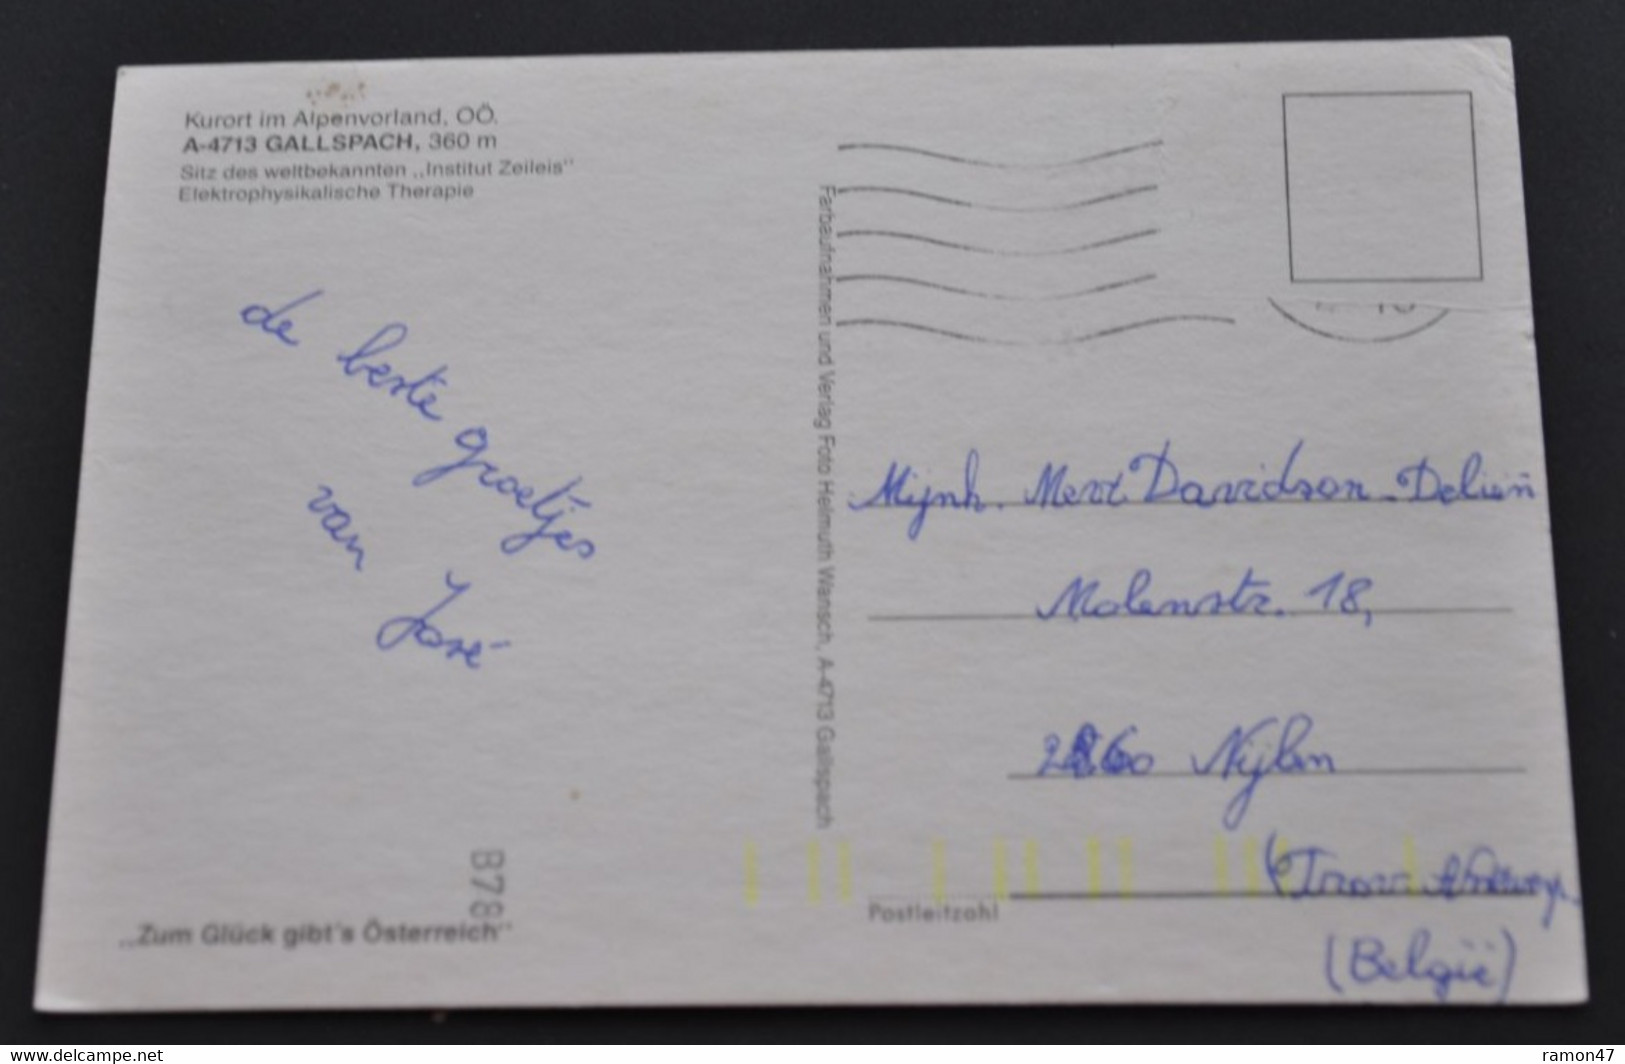 Kurort im Alpenvorland, OÖ.
A-4713 GALLSPACH, 360 m
Sitz des weltbekannten „Institut Zeileis"
Elektrophysikalische Therapie
de beste groetjes
van José
Farbaufnahmen und Verlag Foto Helmuth Wansch, A-4713 Gallspach
Mijnh. Mevr Davidson-Delien
Molenstr. 18,
Nijlen
(Prov. Antwerp.
(België)
Postleitzahl
B78
„Zum Glück gibt's Österreich"
www.delcampe.net
ramon47